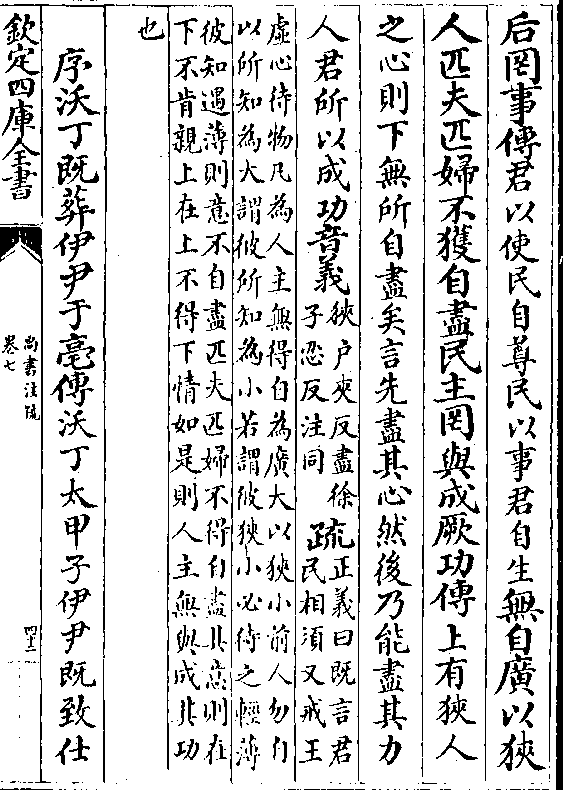 后罔事傳君以使民自尊民以事君自生無自廣以狹
人匹夫匹婦不獲自盡民主罔與成厥功傳上有狹人
之心則下無所自盡矣言先盡其心然後乃能盡其力
人君所以成功音義狹户夾反盡徐
子忍反注同
疏正義曰既言君
民相須又戒王
虛心待物凡為人主無得自為廣大以狹小前人勿自
以所知為大謂彼所知為小若謂彼狹小必待之輕薄
彼知遇薄則意不自盡匹夫匹婦不得自盡其意則在
下不肯親上在上不得下情如是則人主無與成其功
也
序沃丁既葬伊尹于亳傳沃丁太甲子伊尹既致仕
欽定四庫全書
尚書注疏
卷七
四十三